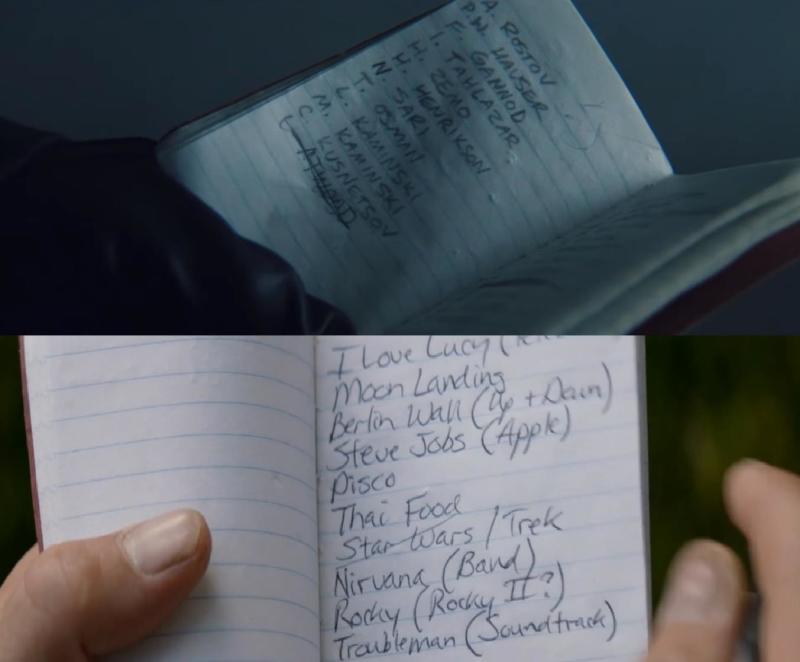 A. ROSTOV
P.W. HAUSER
F. GANNOD
I. TAHLAZAR
H. ZEMO
HENRIKSON
N. SARI
T. OSMAN
L. KAMINSKI
M. KAMINSKI
C. KUSNETSOV
L ATWOOD
I Love Lucy
Moon Landing
Berlin Wall (Up + Down)
Steve Jobs (Apple)
Disco
Thai Food
Star Wars / Trek
Nirvana (Band)
Rocky (Rocky II?)
Troubleman (Soundtrack)